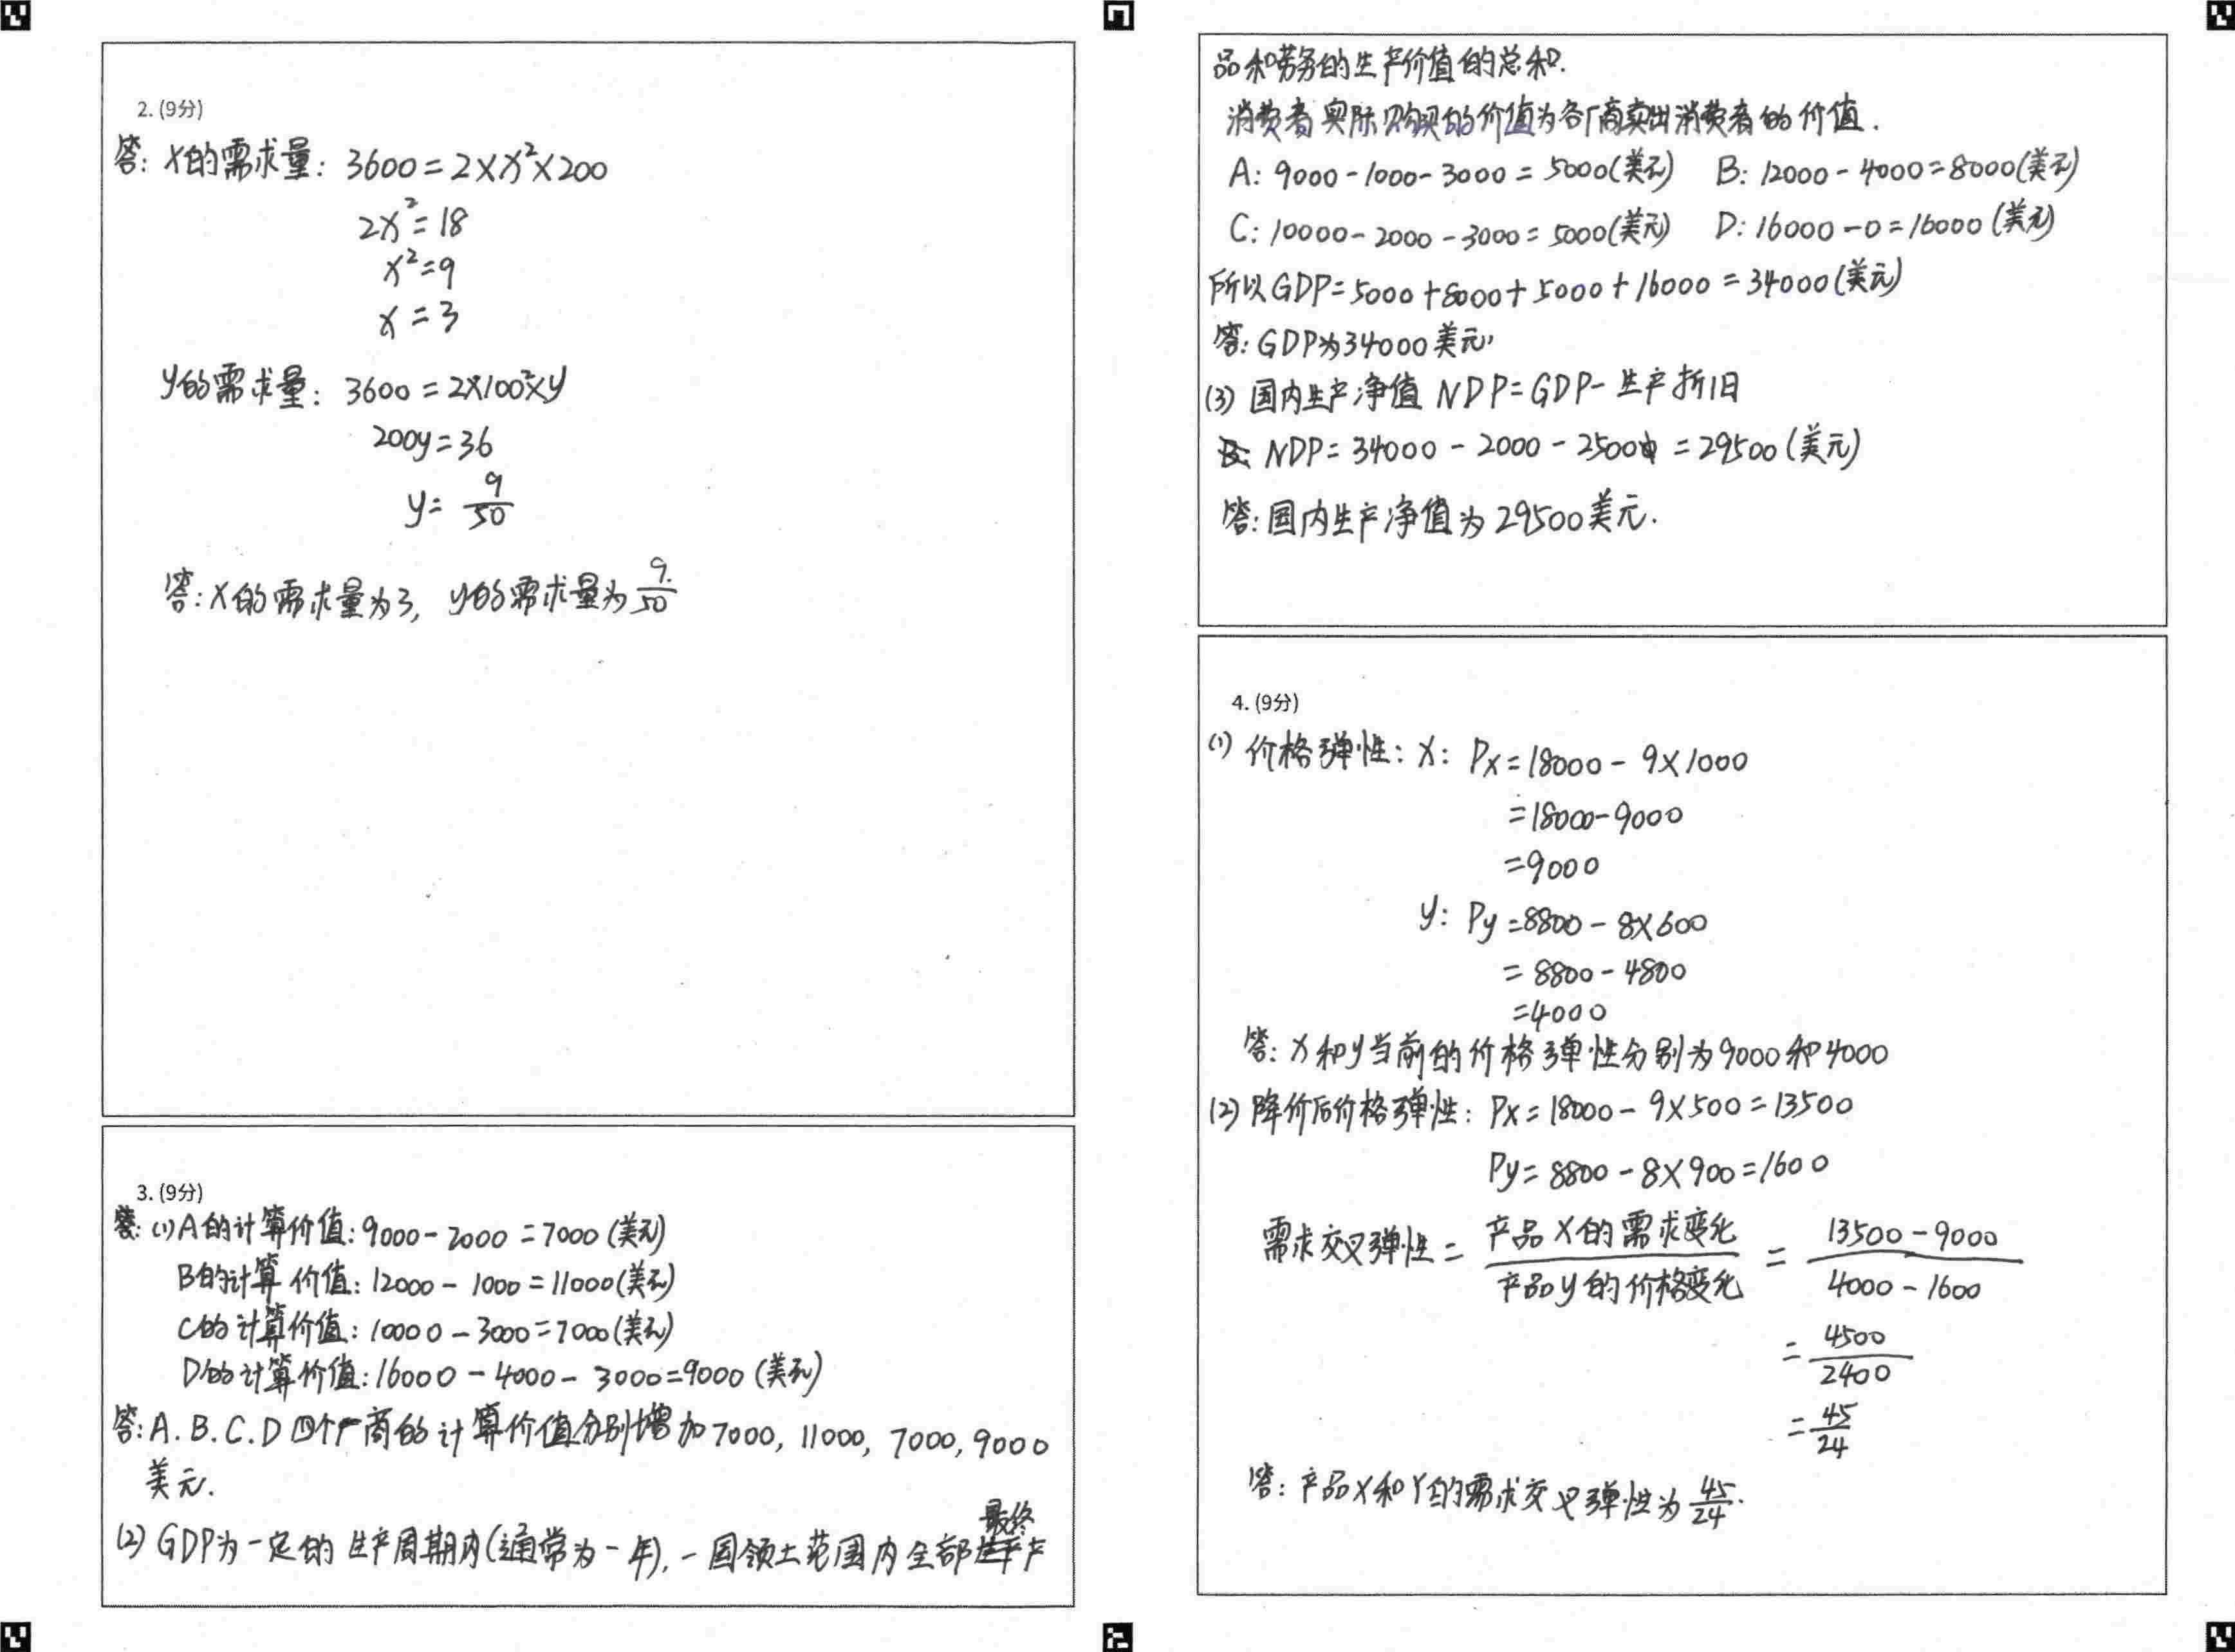 2. (9分)
答: X的需求量: 3600=2×X²×200
2X²=18
X²=9
X=3
y的需求量: 3600=2×100²×y
200y=36
y=9/50
答:X的需求量为3, y的需求量为9/50
3. (9分)
答: (1)A的计算价值:9000-2000=7000(美元)
B的计算价值:12000-1000=11000(美元)
C的计算价值:10000-3000=7000(美元)
D的计算价值:16000-4000-3000=9000(美元)
答:A.B.C.D四个厂商的计算价值分别增加7000, 11000, 7000, 9000
美元.
(2) GDP为一定的生产周期内(通常为一年),一国领土范围内全部最终产
品和劳务的生产价值的总和.
消费者实际购买的价值为各厂商卖出消费者的价值.
A: 9000-1000-3000=5000(美元) B: 12000-4000=8000(美元)
C: 10000-2000-3000=5000(美元) D: 16000-0=16000(美元)
所以GDP=5000+8000+5000+16000=34000(美元)
答:GDP为34000美元,
(3) 国内生产净值 NDP=GDP-生产折旧
NDP=34000-2000-2500=29500(美元)
答:国内生产净值为29500美元.
4. (9分)
(1) 价格弹性: X: Px=18000-9×1000
=18000-9000
=9000
y: Py=8800-8×600
=8800-4800
=4000
答: X和y当前的价格弹性分别为9000和4000
(2) 降价后价格弹性: Px=18000-9×500=13500
Py=8800-8×900=1600
需求交叉弹性=产品X的需求变化/产品y的价格变化=13500-9000/4000-1600
=4500/2400
=45/24
答:产品X和Y的需求交叉弹性为45/24.